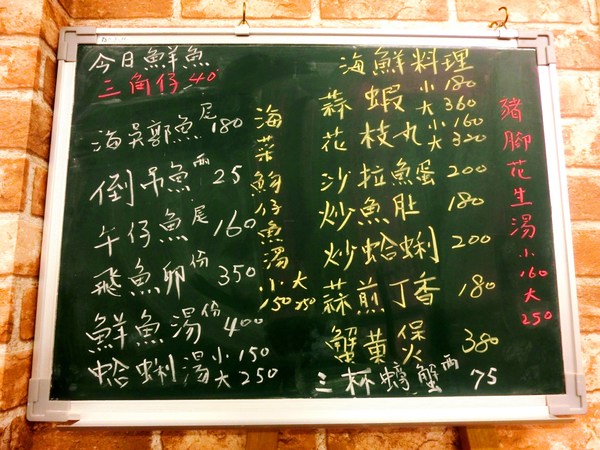 今日鮮魚
三角仔 40
海吳郭魚 尾 180
倒吊魚 兩 25
午仔魚 尾 160
飛魚卵 份 350
鮮魚湯 份 400
蛤蜊湯 小 150 大 250
海菜魩仔魚湯 小 150 大 250
海鮮料理
蒜蝦 小 180 大 360
花枝丸 小 160 大 320
沙拉魚蛋 200
炒魚肚 180
炒蛤蜊 200
蒜煎丁香 180
蟹黃煲 380
三杯螃蟹 兩 75
豬腳花生湯 小 160 大 250